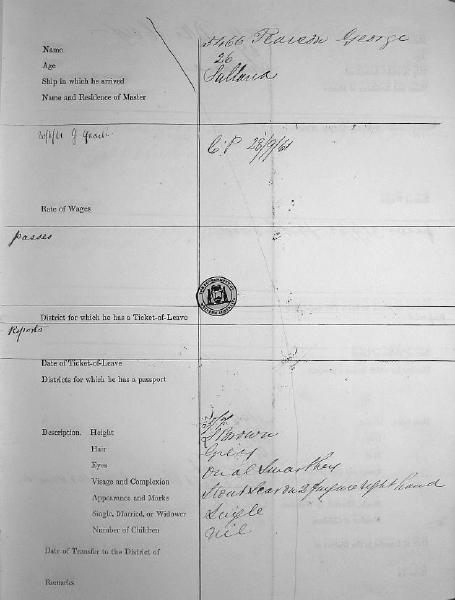 Name 5466 Pearson George
Age 26
Ship in which he arrived Lalland
Name and Residence of Master
C.P 28/9/61
Rate of Wages
Passes
District for which he has a Ticket-of-Leave
Reports
Date of Ticket-of-Leave
Districts for which he has a passport
Description. Height
Hair Brown
Eyes Grey
Visage and Complexion Oval Swarthy
Appearance and Marks Stout Scar on 2 right hand
Single, Married, or Widower Single
Number of Children Nil
Date of Transfer to the District of
Remarks